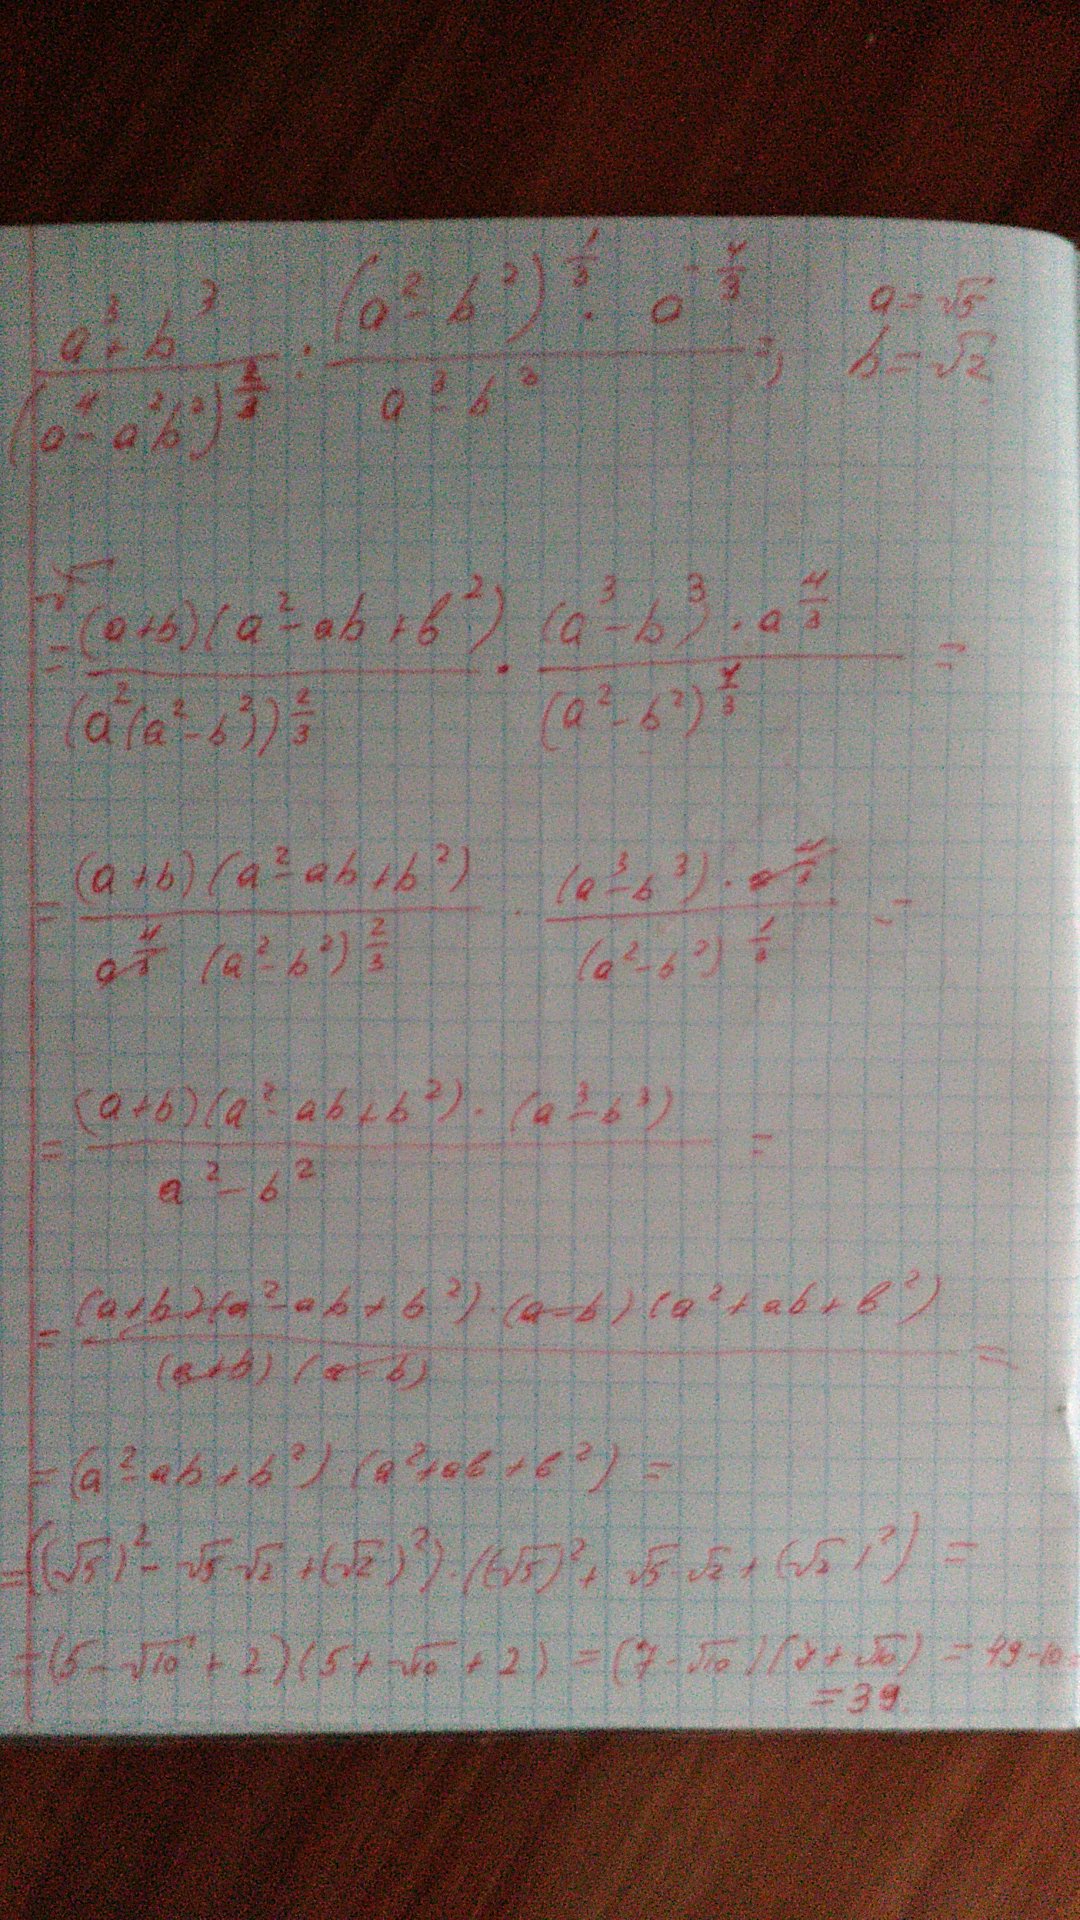 (a³ + b³)/(a⁴ - a²b²)^(2/3) : ((a² - b²)^(1/3) · a^(-4/3))/(a³ - b³) =; a = √5
b = √2
= ((a+b)(a² - ab + b²))/(a²(a² - b²))^(2/3) · ((a³ - b³) · a^(4/3))/(a² - b²)^(1/3) =
= ((a+b)(a² - ab + b²))/(a^(4/3) (a² - b²)^(2/3)) · ((a³ - b³) · a^(4/3))/(a² - b²)^(1/3) =
= ((a+b)(a² - ab + b²) · (a³ - b³))/(a² - b²) =
= ((a+b)(a² - ab + b²) · (a - b)(a² + ab + b²))/((a+b)(a - b)) =
= (a² - ab + b²) · (a² + ab + b²) =
= ((√5)² - √5·√2 + (√2)²) · ((√5)² + √5·√2 + (√2)²) =
= (5 - √10 + 2)(5 + √10 + 2) = (7 - √10)(7 + √10) = 49 - 10 =
= 39